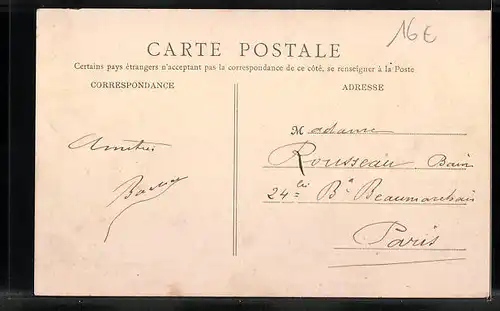 16€
CARTE POSTALE
Certains pays étrangers n'acceptant pas la correspondance de ce côté, se renseigner à la Poste
CORRESPONDANCE
ADRESSE
Madame
Rousseau
24 Bd Beaumarchais
Paris